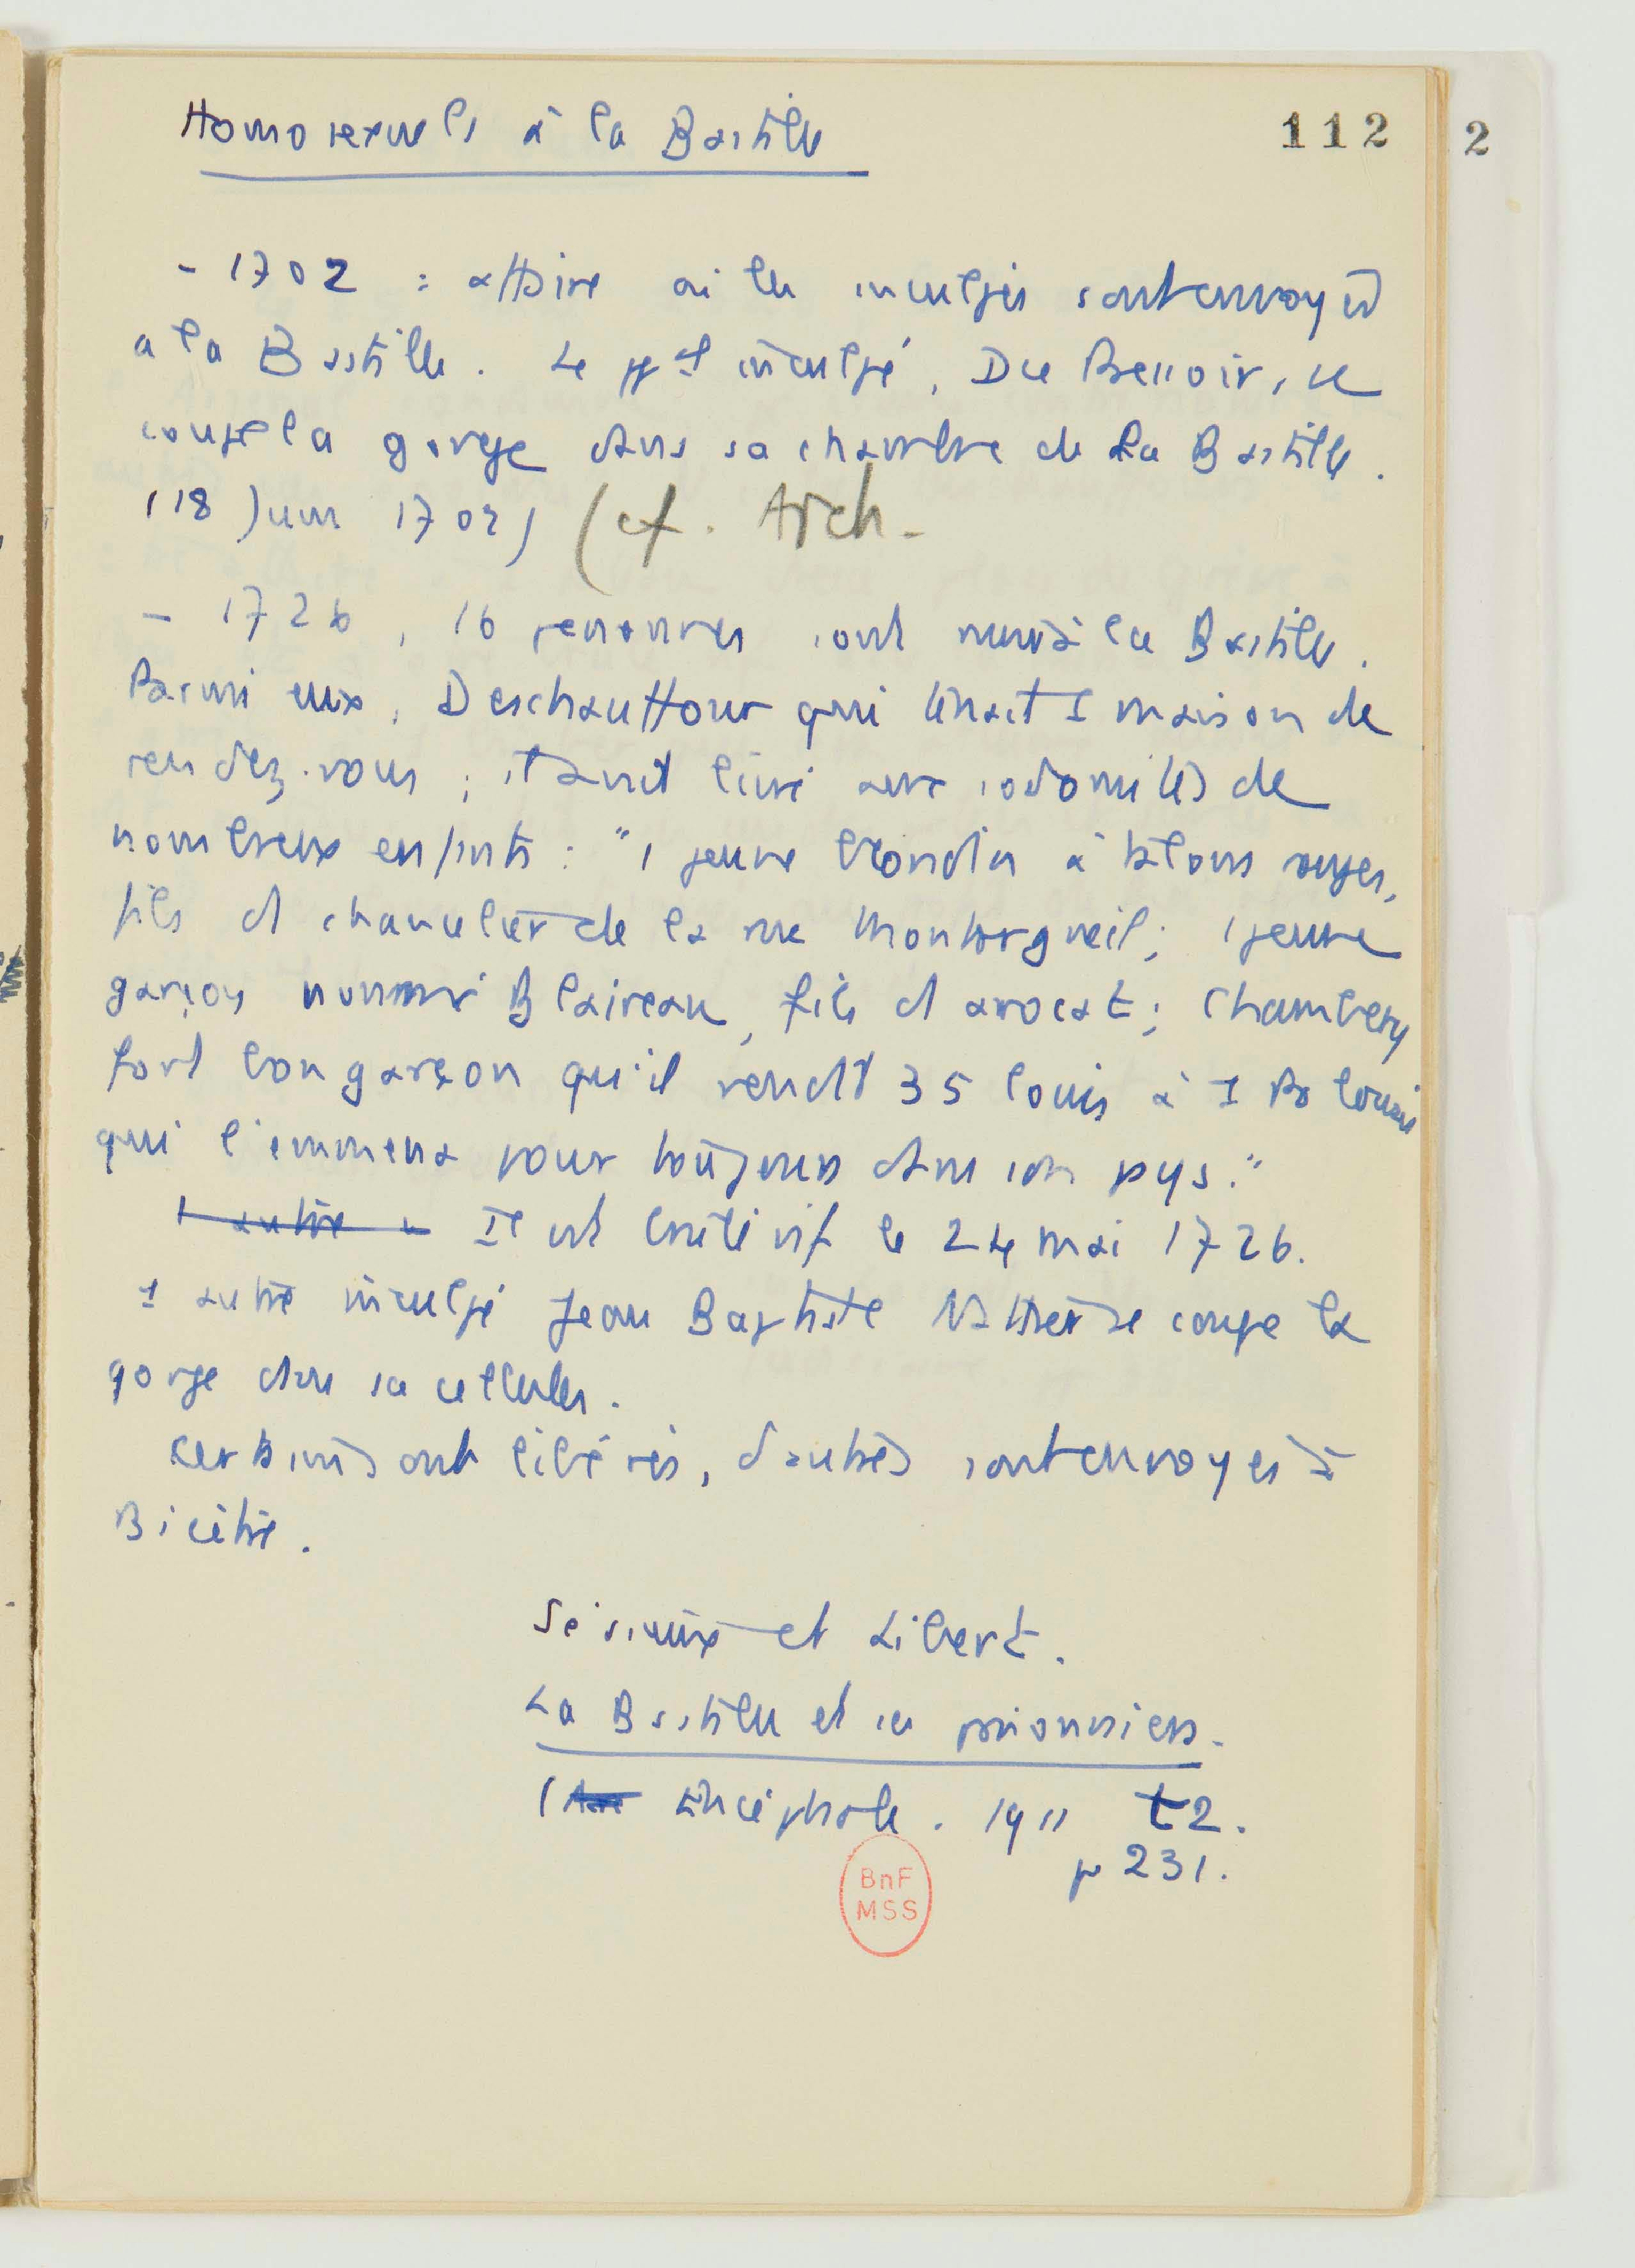 Homosexuels à la Bastille
112 2
- 1702 : affaire où les inculpés sont envoyés
à la Bastille. Le ppal inculpé, Du Plessoir, se
coupe la gorge dans sa chambre de la Bastille.
(18 Juin 1702) (cf. Arch-
- 1726, 16 personnes sont menés à la Bastille.
Parmi eux, Deschauffour qui tenait 1 maison de
rendez-vous ; il avait livré aux sodomites de
nombreux enfants : "1 jeune blondin à talons rouges,
fils d chancelier de la rue Montorgueil; 1 jeune
garçon nommé Blaireau, fils d avocat; Chambery
fort bon garçon qu'il vendit 35 louis à 1 Polonais
qui l'emmena pour toujours dans son pays."
1 autre Il est brûlé vif le 24 mai 1726.
1 autre inculpé Jean Baptiste Nattier se coupe la
gorge dans sa cellule.
Certains sont libérés, d'autres sont envoyés à
Bicêtre.
Sérieux et Libert.
La Bastille et ses prisonniers.
( Encéphale. 1911 t2.
p 231.
BnF
MSS